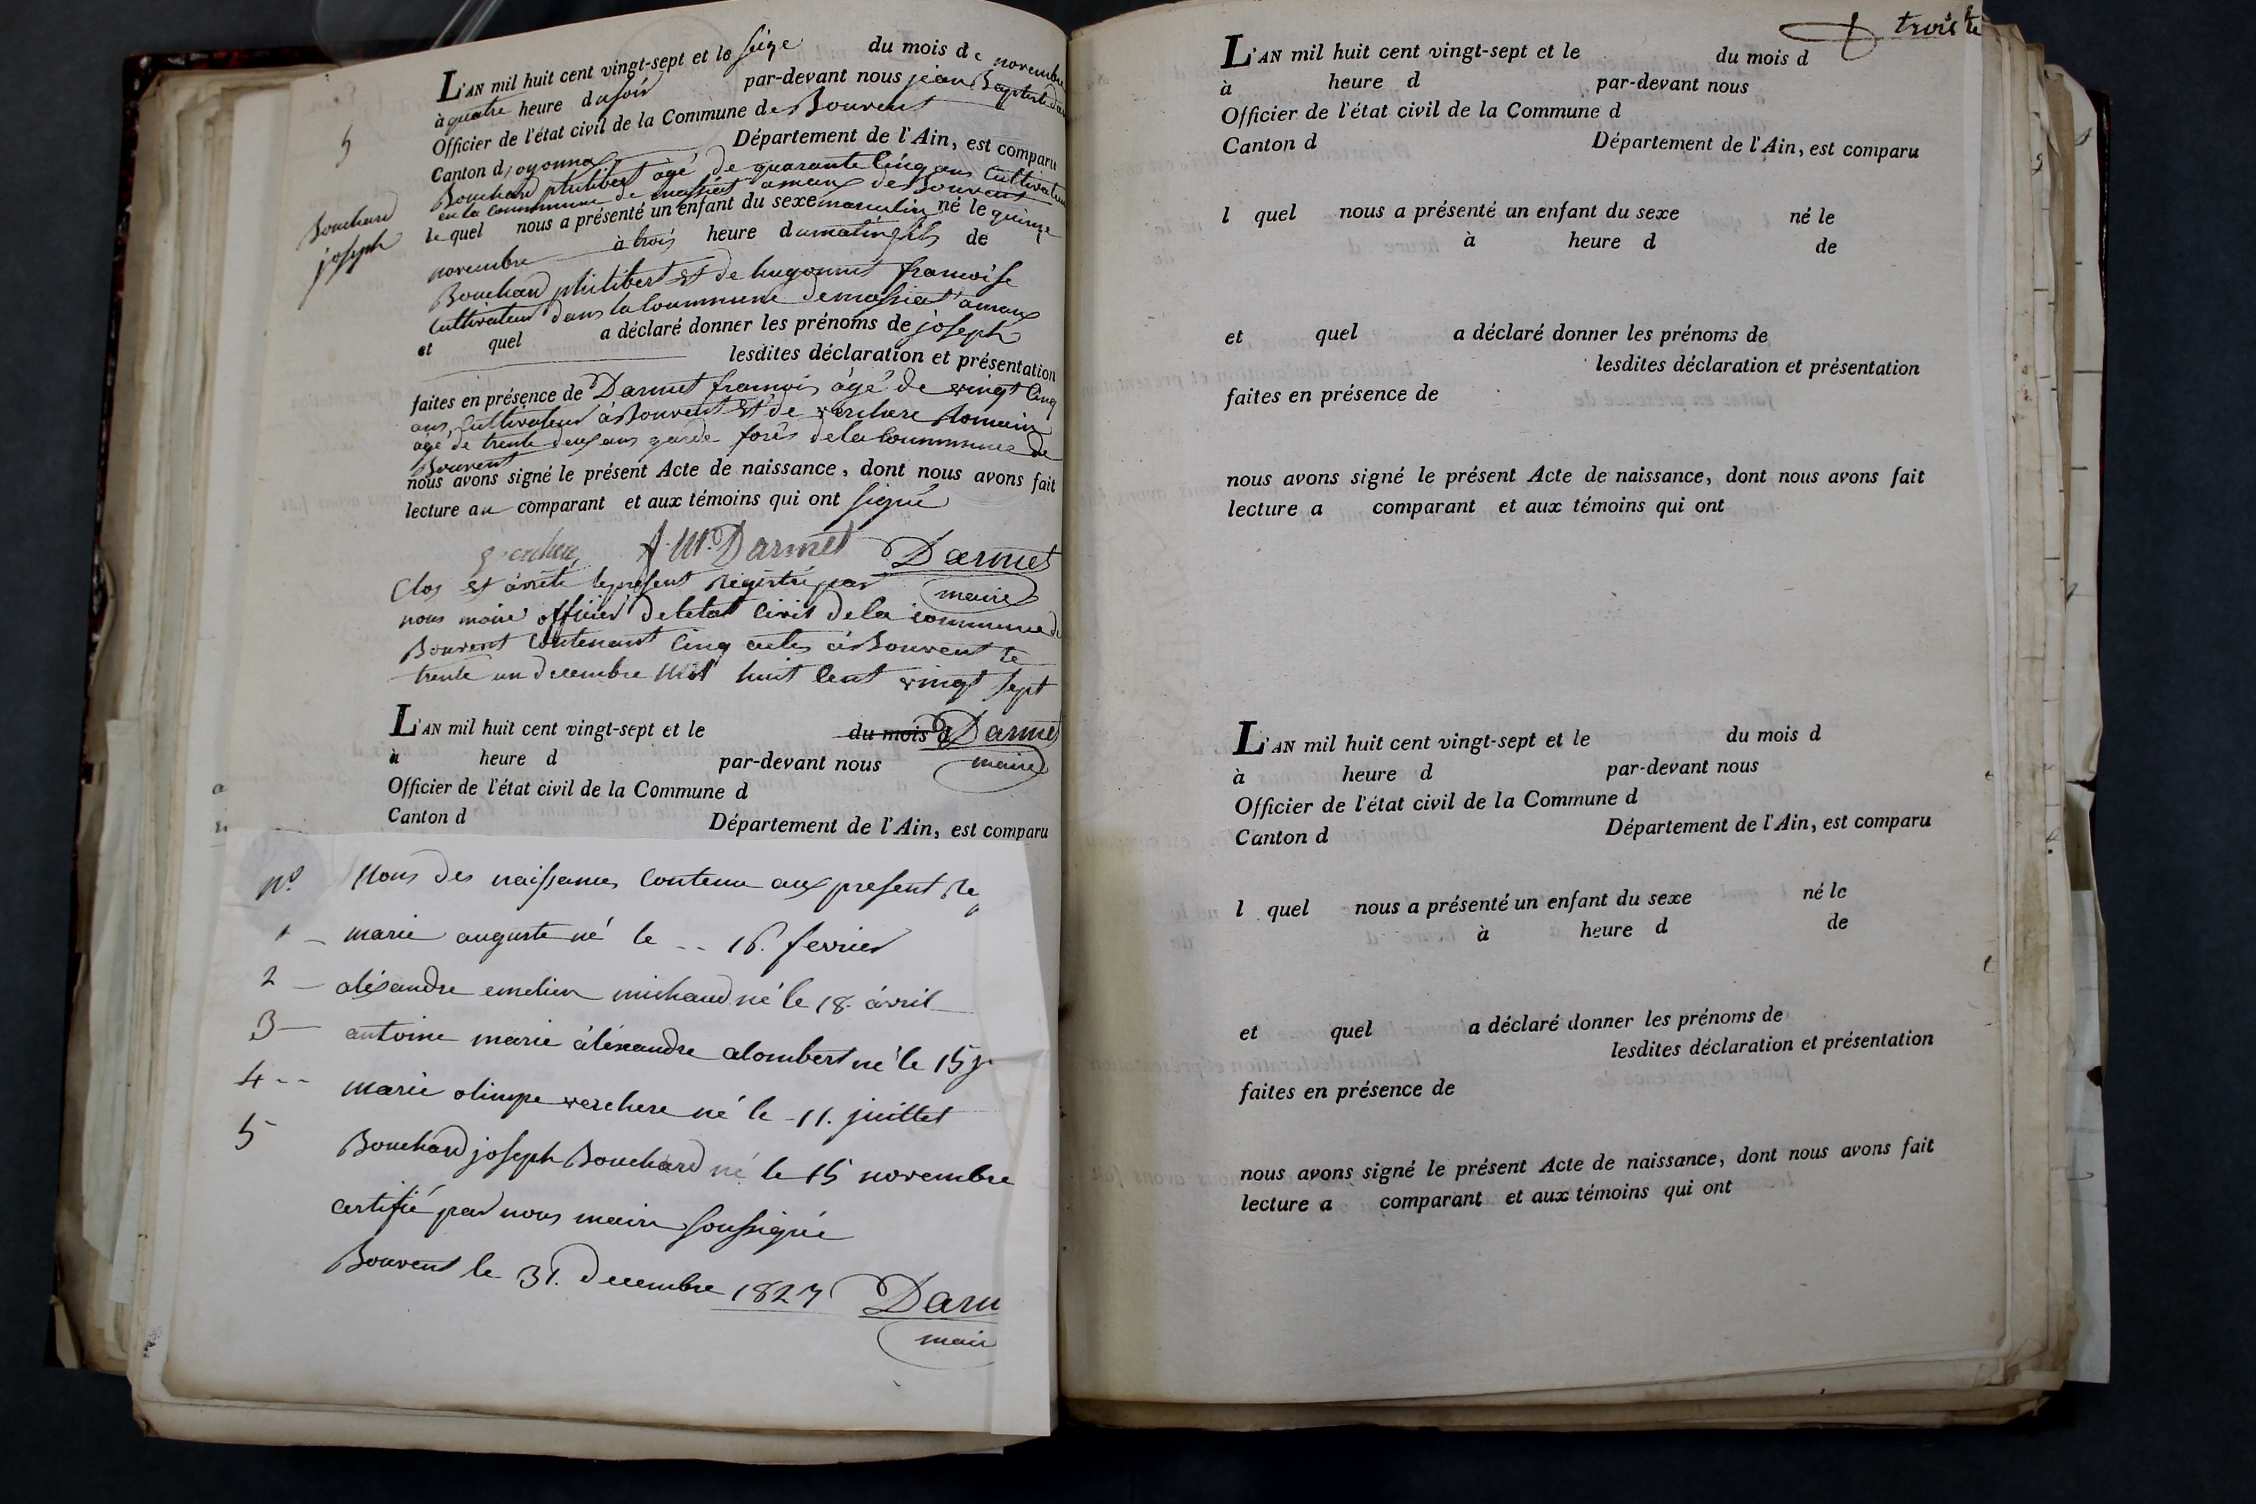 5
Bouchard
joseph
L'AN mil huit cent vingt-sept et le seize du mois de novembre
à quatre heure du soir par-devant nous jean Baptiste
Officier de l'état civil de la Commune de Bouvent
Canton d'oyonnax Département de l'Ain, est comparu
Bouchard philibert âgé de quarante cinq ans cultivateur
en la commune de massiat amaux de Bouvent
le quel nous a présenté un enfant du sexe masculin né le quinze
novembre à trois heure du matin fils de
Bouchard philibert et de hugonnet francoise
cultivateur dans la commune de massiat amaux
et quel a déclaré donner les prénoms de joseph
lesdites déclaration et présentation
faites en présence de Darmet francois âgé de vingt cinq
ans, cultivateur à Bouvent et de verchere Romain
agé de trente deux ans garde forês de la commune de
Bouvent
nous avons signé le présent Acte de naissance, dont nous avons fait
lecture au comparant et aux témoins qui ont signé
verchere f. M. Darmet Darmet
maire
Clos et árrêté le present Registre par
nous maire officier de letat civil de la commune de
Bouvent contenant cinq actes à Bouvent le
trente un decembre mil huit cent vingt sept
Darmet
maire
L'AN mil huit cent vingt-sept et le du mois d
à heure d par-devant nous
Officier de l'état civil de la Commune d
Canton d Département de l'Ain, est comparu
nº Noms des naissances contenu aux present Re
1 _ marie auguste né le -- 16. fevrier
2 — aléxandre emelien michaud né le 18. ávril
3 — antoine marie áléxandre alombert né le 15 j
4 -- marie olimpe verchere né le - 11. juillet
5 Bouchard joseph Bouchard né le 15 novembre
certifié par nous maire soussigné
Bouvent le 31. decembre 1827 Darm
mair
trois
L'AN mil huit cent vingt-sept et le du mois d
à heure d par-devant nous
Officier de l'état civil de la Commune d
Canton d Département de l'Ain, est comparu
l quel nous a présenté un enfant du sexe né le
à heure d de
et quel a déclaré donner les prénoms de
lesdites déclaration et présentation
faites en présence de
nous avons signé le présent Acte de naissance, dont nous avons fait
lecture a comparant et aux témoins qui ont
L'AN mil huit cent vingt-sept et le du mois d
à heure d par-devant nous
Officier de l'état civil de la Commune d
Canton d Département de l'Ain, est comparu
l quel nous a présenté un enfant du sexe né le
à heure d de
et quel a déclaré donner les prénoms de
lesdites déclaration et présentation
faites en présence de
nous avons signé le présent Acte de naissance, dont nous avons fait
lecture a comparant et aux témoins qui ont